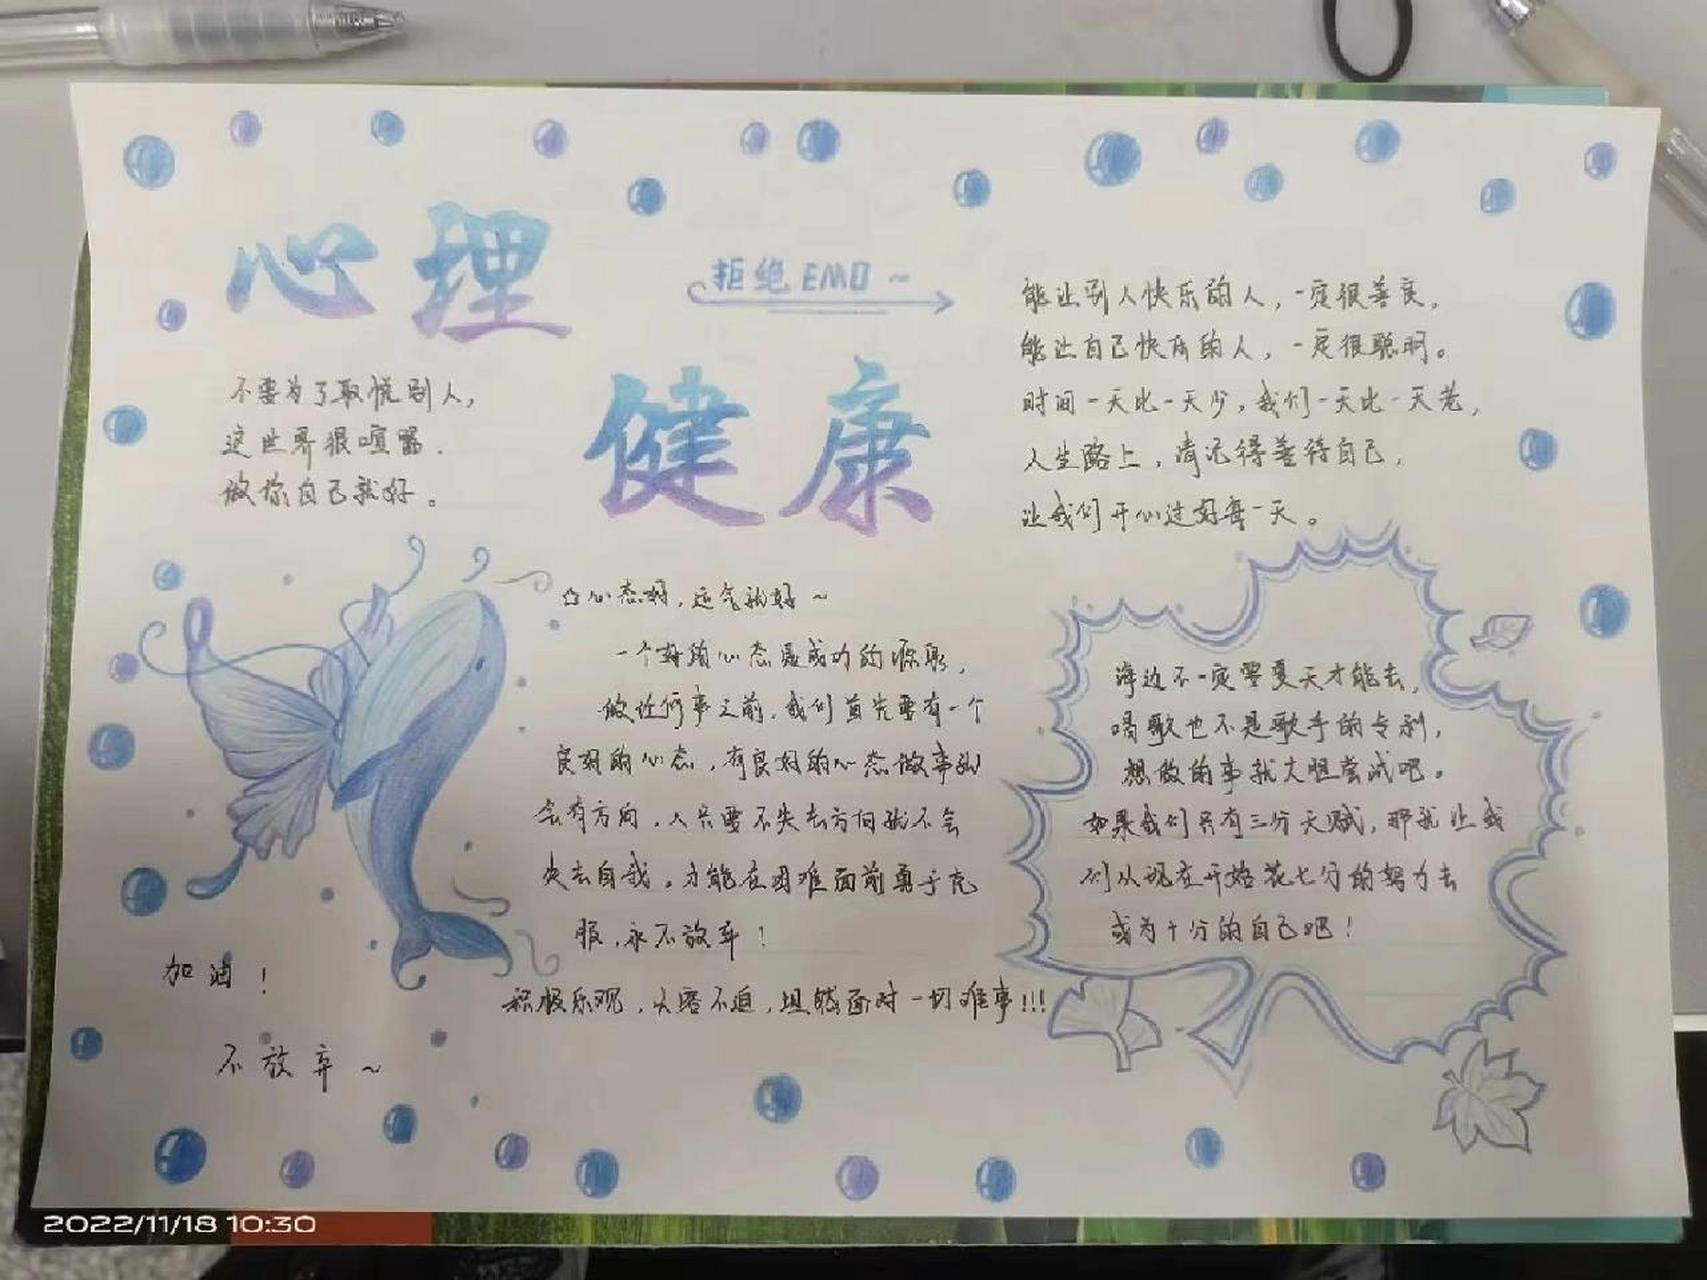 心理
健康
拒绝 EMO ~
不要为了取悦别人，
这世界很喧嚣．
做你自己就好。
能让别人快乐的人，一定很善良，
能让自己快乐的人，一定很聪明。
时间一天比一天少，我们一天比一天老，
人生路上，请记得善待自己，
让我们开心过好每一天。
☆心态好，运气就好~
一个好的心态是成功的源泉，
做任何事之前，我们首先要有一个
良好的心态，有良好的心态做事就
会有方向，人只要不失去方向就不会
失去自我。才能在困难面前勇于克
服，永不放弃！
积极乐观，从容不迫，坦然面对一切难事!!!
海边不一定要夏天才能去，
唱歌也不是歌手的专利，
想做的事就大胆尝试吧。
如果我们只有三分天赋，那就让我
们从现在开始花七分的努力去
成为十分的自己吧！
加油！
不放弃~
2022/11/18 10:30